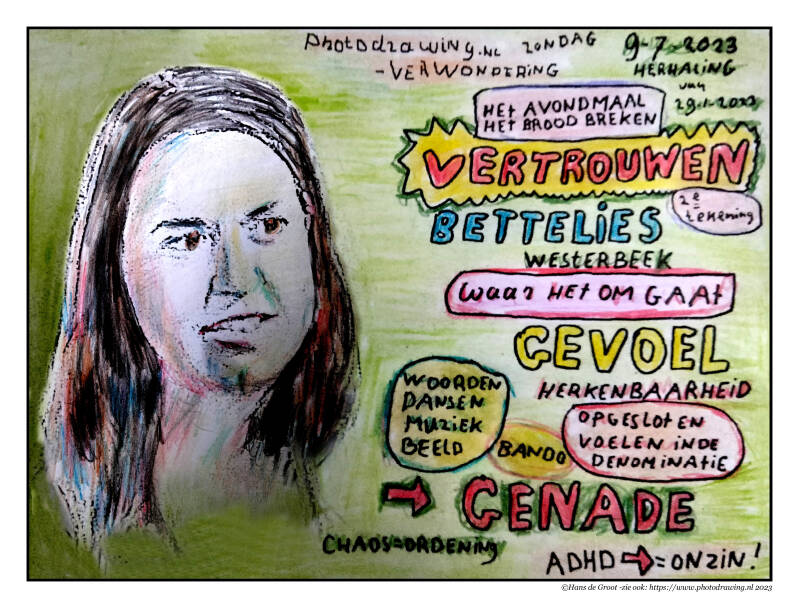 Photodrawing.nl ZONDAG 9-7-2023
-VERWONDERING HERHALING
van
29-1-2023
HET AVONDMAAL
HET BROOD BREKEN
VERTROUWEN
2e
tekening
BETTELIES
WESTERBEEK
Waar HET OM GAAT
GEVOEL
HERKENBAARHEID
WOORDEN
DANSEN
MUZIEK
BEELD
BANDO
OPGESLOTEN
VOELEN IN DE
DENOMINATIE
→ GENADE
CHAOS=ORDENING
ADHD → = ONZIN!
©Hans de Groot -zie ook: https://www.photodrawing.nl 2023